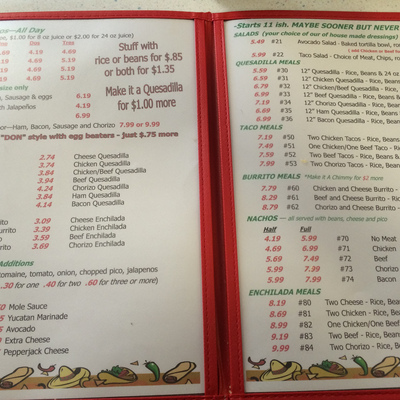 os—All Day
$1.00 for 8 oz juice or $2.00 for 24 oz juice)
One One One
4.19 4.69
4.19 4.69
4.19 5.19
4.69 5.19
Stuff with
rice or beans for $.85
or both for $1.35
Make it a Quesadilla
for $1.00 more
size only
, Sausage & eggs 6.19
ith Jalapeños 4.19
6.69
6.99
or—Ham, Bacon, Sausage and Chorizo 7.99 or 9.99
"DON" style with egg beaters - just $.75 more
2.74 Cheese Quesadilla
3.74 Chicken Quesadilla
3.84 Chicken/Beef Quesadilla
3.94 Beef Quesadilla
4.24 Chorizo Quesadilla
3.84 Ham Quesadilla
4.14 Bacon Quesadilla
3.09 Cheese Enchilada
3.39 Chicken Enchilada
3.59 Beef Enchilada
3.69 Chorizo Enchilada
Additions
romaine, tomato, onion, chopped pico, jalapenos
.30 for one .40 for two .60 for three or more)
Mole Sauce
Yucatan Marinade
Avocado
Extra Cheese
Pepperjack Cheese
-Starts 11 ish. MAYBE SOONER BUT NEVER
SALADS (your choice of our of house made dressings)
5.49 #21 Avocado Salad - Baked tortilla bowl, ro
5.99 #22 Taco Salad - Choice of Meat, Chips, ro
QUESADILLA MEALS
5.59 #30 12" Quesadilla - Rice, Beans & 24 oz
6.59 #31 12" Chicken Quesadilla - Rice, Beans
6.79 #32 12" Chicken/Beef Quesadilla - Rice,
6.99 #33 12" Beef Quesadilla - Rice, Beans
7.19 #34 12" Chorizo Quesadilla - Rice, Beans
6.69 #35 12" Ham Quesadilla - Rice, Beans
6.99 #36 12" Bacon Quesadilla - Rice, Beans
TACO MEALS
7.19 #50 Two Chicken Tacos - Rice, Beans
7.49 #51 One Chicken/One Beef Taco - Rice
7.59 #52 Two Beef Tacos - Rice, Beans
7.99 #53 Two Chorizo Tacos - Rice, Beans
BURRITO MEALS *Make it A Chimmy for $2 more
7.79 #60 Chicken and Cheese Burrito -
8.29 #61 Beef and Cheese Burrito - Rice
8.79 #62 Chorizo and Cheese Burrito -
NACHOS — all served with beans, cheese and pico
Half Full
4.19 5.99 #70 No Meat
4.69 6.99 #71 Chicken
5.69 7.49 #72 Beef
5.99 7.99 #73 Chorizo
5.99 7.99 #74 Bacon
ENCHILADA MEALS
8.19 #80 Two Cheese - Rice, Bean
8.69 #81 Two Chicken - Rice, Bean
8.99 #82 One Chicken/One Beef
9.19 #83 Two Beef - Rice, Beans
9.99 #84 Two Chorizo - Rice, Bea